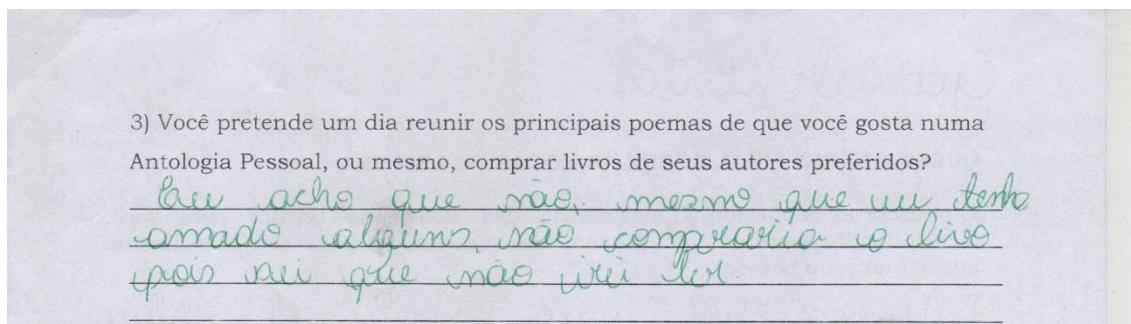 3) Você pretende um dia reunir os principais poemas de que você gosta numa
Antologia Pessoal, ou mesmo, comprar livros de seus autores preferidos?
Eu acho que não, mesmo que eu tenha
amado alguns, não compraria o livo
pois sei que não irei ler.